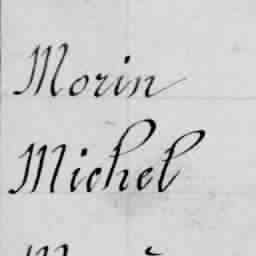 Morin
Michel